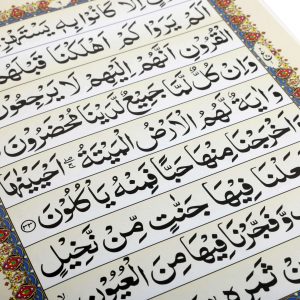 إِلَّا كَانُوا بِهِ يَسْتَهْزِ
لَمْ يَرَوْا كَمْ أَهْلَكْنَا قَبْلَهُمْ
الْقُرُونِ أَنَّهُمْ إِلَيْهِمْ لَا يَرْجِعُونَ
وَإِنْ كُلٌّ لَمَّا جَمِيعٌ لَدَيْنَا مُحْضَرُونَ
وَآيَةٌ لَهُمُ الْأَرْضُ الْمَيْتَةُ أَحْيَيْنَاهَا
وَأَخْرَجْنَا مِنْهَا حَبًّا فَمِنْهُ يَأْكُلُونَ ٣٣
جَعَلْنَا فِيهَا جَنَّاتٍ مِنْ نَخِيلٍ
وَفَجَّرْنَا فِيهَا مِنَ الْعُيُونِ
مِنْ ثَمَرِهِ